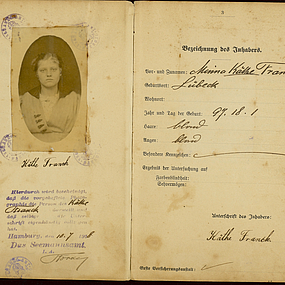 Käthe Franck
Hierdurch wird bescheinigt,
daß die vorgeheftete Photo-
graphie die Person Käthe
Franck
Hamburg, den 10. 7. 19
Das Seemannsamt.
I. A.
2
Bezeichnung des Inhabers.
Vor- und Zunamen: Minna Käthe Fran
Geburtsort: Lübeck
Wohnort:
Jahr und Tag der Geburt: 97. 18. 1
Haare: blond
Augen: blond
Besondere Kennzeichen:
Ergebnis der Untersuchung auf
Farbenblindheit:
Sehvermögen:
Unterschrift des Inhabers:
Käthe Franck.
Siehe Versicherungsanstalt: